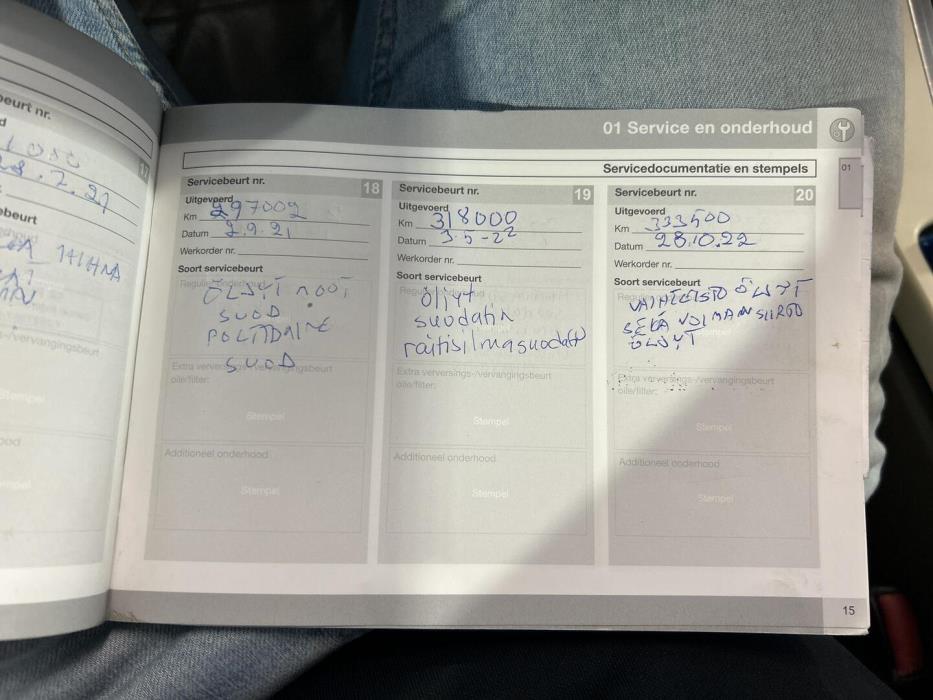 01 Service en onderhoud
Servicedocumentatie en stempels
01
beurt nr.
17
28.2.21
beurt
HIHNA
-/vervangingsbeurt
Stempel
Servicebeurt nr.
18
Uitgevoerd
Km 297002
Datum 2.9.21
Werkorder nr.
Soort servicebeurt
ÖLJYT MOOT
SUOD
POLTTOAINE
SUOD
Extra verversings-/vervangingsbeurt
olie/filter:
Stempel
Additioneel onderhood
Stempel
Servicebeurt nr.
19
Uitgevoerd
Km 318000
Datum 3.5-22
Werkorder nr.
Soort servicebeurt
öljyt
suodatin
raitisilmasuodatt
Extra verversings-/vervangingsbeurt
olie/filter:
Stempel
Additioneel onderhood
Stempel
Servicebeurt nr.
20
Uitgevoerd
Km 333500
Datum 28.10.22
Werkorder nr.
Soort servicebeurt
VAIHTEISTO ÖLJYT
SEKÄ VOIMANSIIRTO
ÖLJYT
Extra verversings-/vervangingsbeurt
olie/filter:
Stempel
Additioneel onderhood
Stempel
15